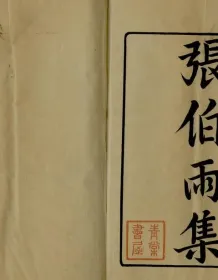 張伯雨集